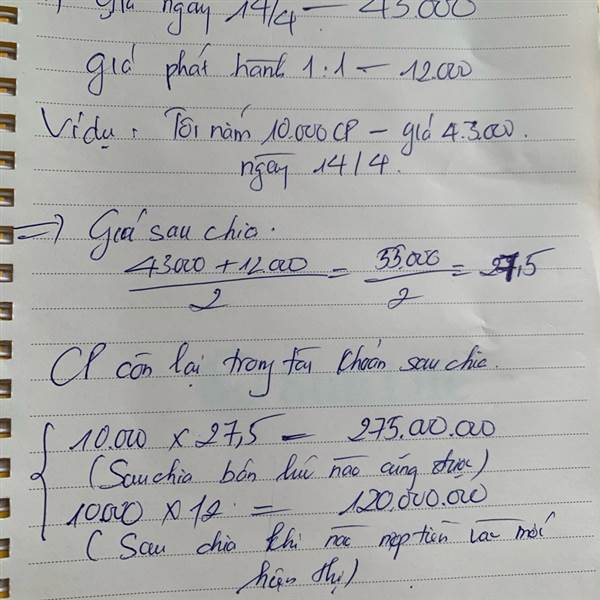 giá ngày 14/4 — 43.000
giá phát hành 1:1 — 12.000
Ví dụ: Tôi nắm 10.000 CP — giá 43.000.
ngày 14/4.
=> Giá sau chia.
43000 + 12000 / 2 = 55000 / 2 = 27,5
CP còn lại trong tài khoản sau chia.
10.000 x 27,5 = 275.000.000
(Sau chia bán lúc nào cũng được)
10000 x 12 = 120.000.000
(Sau chia khi nào nộp tiền vào mới
hiện thị)